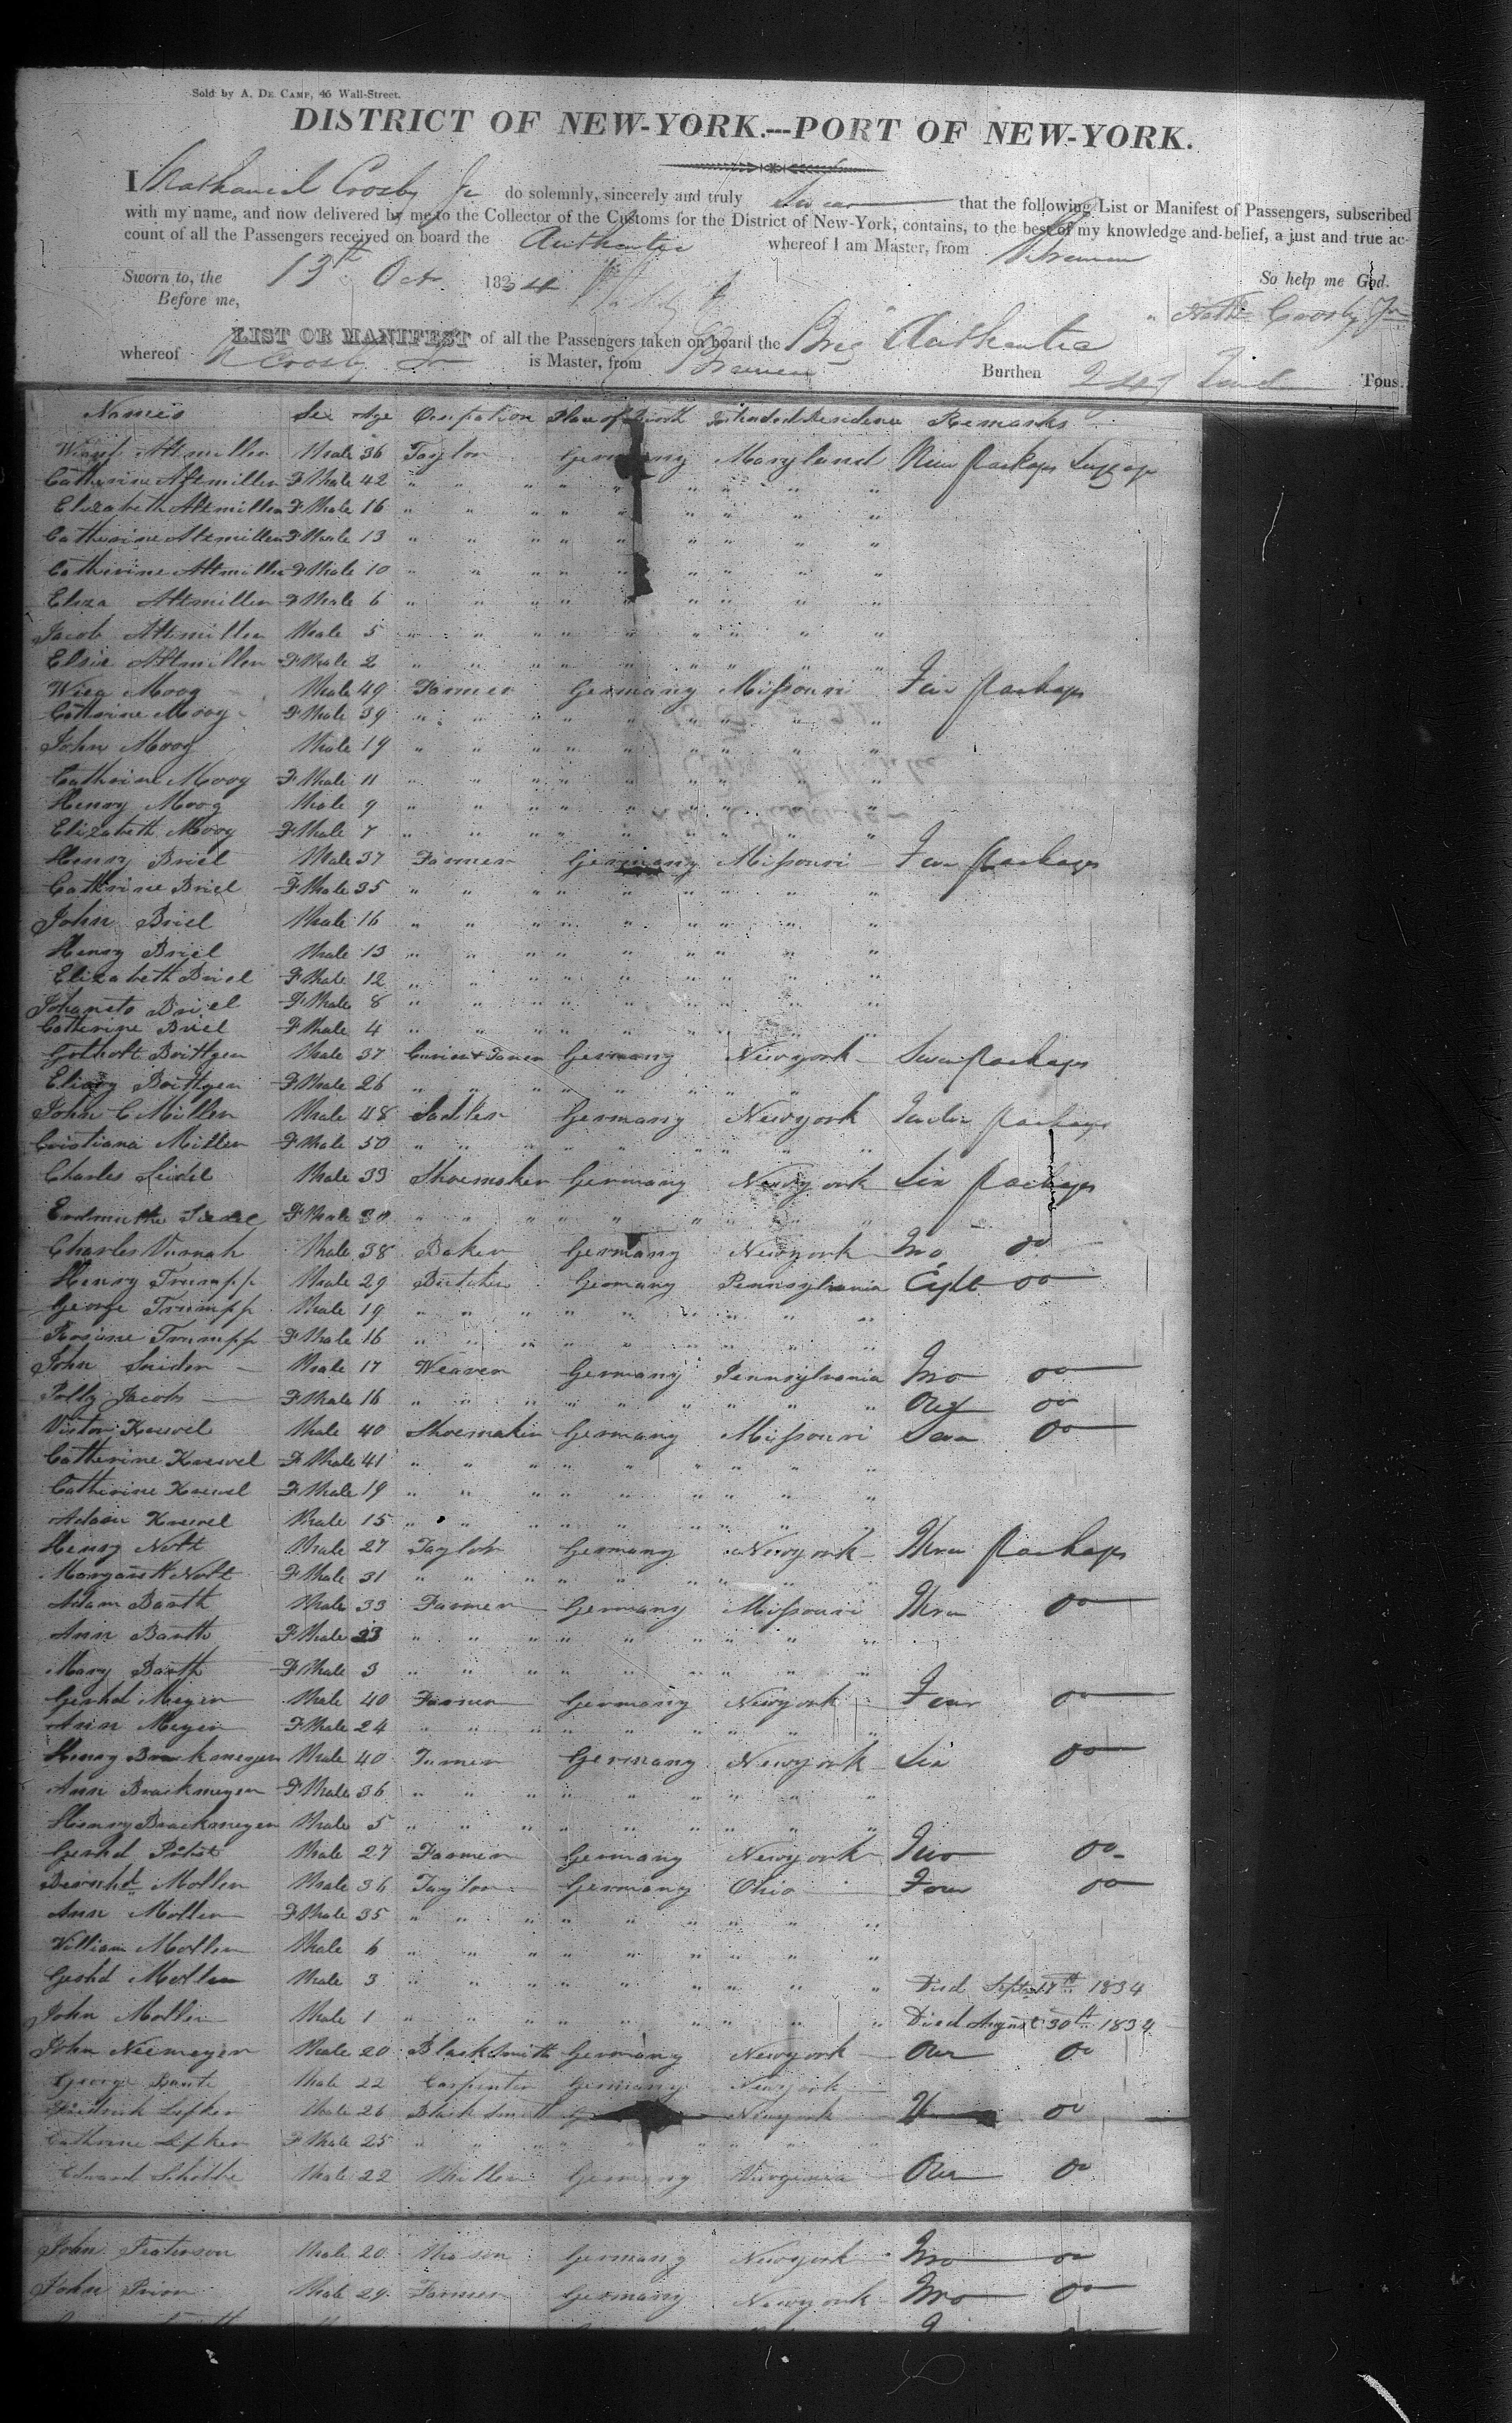 Sold by A. DE CAMP, 46 Wall-Street.
DISTRICT OF NEW-YORK.---PORT OF NEW-YORK.
I Nathaniel Crosby Jr do solemnly, sincerely and truly swear that the following List or Manifest of Passengers, subscribed
with my name, and now delivered by me to the Collector of the Customs for the District of New-York, contains, to the best of my knowledge and belief, a just and true ac-
count of all the Passengers received on board the Authentic whereof I am Master, from Bremen
Sworn to, the 13th Oct 1834 So help me God.
Before me, Nathl Crosby Jr
LIST OR MANIFEST of all the Passengers taken on board the Brig Authentic
whereof N Crosby Jr is Master, from Bremen Burthen Tons.
Names Sex Age Occupation Place of Birth Intended Residence Remarks
Altmiller Male 36 Taylor Germany Maryland Nine packages Luggage
Catherine Altmiller FMale 42 " " " " " " " " "
Elizabeth Altmiller FMale 16 " " " " " " " " "
Catherine Altmiller FMale 13 " " " " " " " " "
Catherine Altmiller FMale 10 " " " " " " " " "
Eliza Altmiller FMale 6 " " " " " " " " "
Jacob Altmiller Male 5 " " " " " " " " "
Elsie Altmiller FMale 2 " " " " " " " " "
Moog Male 49 Farmer Germany Missouri packages
Cathrine Moog FMale 39 " " " " " " " " "
John Moog Male 19 " " " " " " " " "
Cathrine Moog FMale 11 " " " " " " " " "
Henry Moog Male 9 " " " " " " " " "
Elizabeth Moog FMale 7 " " " " " " " " "
Henry Briel Male 37 Farmer Germany Missouri Four packages
Cathrine Briel FMale 35 " " " " " " " " "
John Briel Male 16 " " " " " " " " "
Henry Briel Male 13 " " " " " " " " "
Elizabeth Briel FMale 12 " " " " " " " " "
Briel FMale 8 " " " " " " " " "
Catherine Briel FMale 4 " " " " " " " " "
Male 37 Germany Newyork Seven packages
FMale 26 " " " " " " " "
John C Miller Male 48 Sadler Germany Newyork packages
Cristiana Miller FMale 50 " " " " " " " " "
Charles Seidel Male 33 Shoemaker Germany Newyork Six packages
Seidel FMale 30 " " " " " " " " "
Charles Male 38 Baker Germany Newyork Two Do
Henry Trumpp Male 29 Butcher Germany Pennsylvania Eight Do
George Trumpp Male 19 " " " " " " " " "
Rosine Trumpp FMale 16 " " " " " " " " "
John Male 17 Weaver Germany Pennsylvania Two Do
Polly Jacobs FMale 16 " " " " " " " " " One Do
Krewel Male 40 Shoemaker Germany Missouri Do
Catherine Krewel FMale 41 " " " " " " " " "
Catherine Krewel FMale 19 " " " " " " " " "
Adam Krewel Male 15 " " " " " " " " "
Henry Nott Male 27 Taylor Germany Newyork Three packages
Nott FMale 31 " " " " " " " " "
Adam Barth Male 33 Farmer Germany Missouri Three Do
Ann Barth FMale 23 " " " " " " " " "
Mary Barth FMale 3 " " " " " " " " "
Gerhd Meyer Male 40 Farmer Germany Newyork Four Do
Ann Meyer FMale 24 " " " " " " " " "
Henry Brackmeyer Male 40 Turner Germany Newyork Six Do
Ann Brackmeyer FMale 36 " " " " " " " " "
Henry Brackmeyer Male 5 " " " " " " " " "
Gerhd Male 27 Farmer Germany Newyork Two Do
Mollen Male 36 Taylor Germany Ohio Four Do
Ann Mollen FMale 35 " " " " " " " " "
William Mollen Male 6 " " " " " " " " "
Gerhd Mollen Male 3 " " " " " " " " " Died Septr 17th 1834
John Mollen Male 1 " " " " " " " " " Died August 30th 1834
John Niemeyer Male 20 BlackSmith Germany Newyork One Do
George Male 22 Carpenter Germany Newyork
Fredrick Lefker Male 26 BlackSmith Newyork Do
Cathrine Lefker FMale 25 " " " " " " " "
Edward Male 22 Miller Germany Virginia One Do
John Male 20 Mason Germany Newyork Two Do
John Male 29 Farmer Germany Newyork Two Do